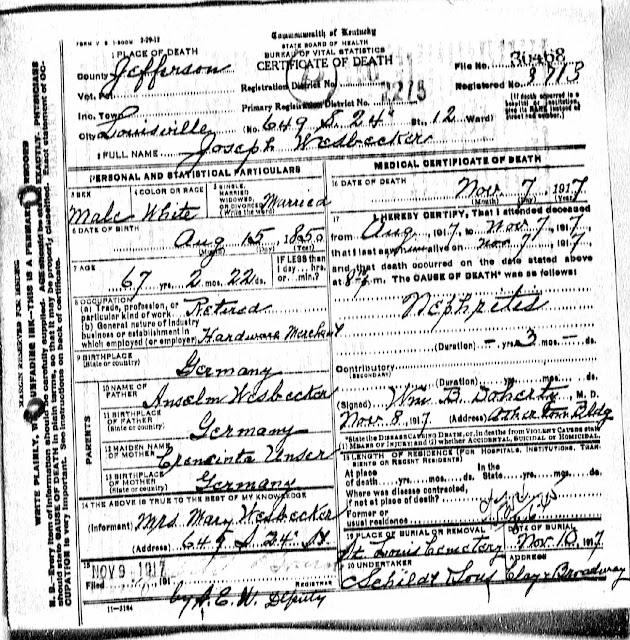 FORM V S 1-500M 2-29-12
Commonwealth of Kentucky
STATE BOARD OF HEALTH
BUREAU OF VITAL STATISTICS
CERTIFICATE OF DEATH
1 PLACE OF DEATH
County Jefferson
Vot. Pct
Inc. Town
City Louisville
Registration District No.
Primary Registration District No.
File No. 36468
Registered No.
(No. 649 S. 24" St., 12 Ward)
[If death occurred in a hospital or institution, give its NAME instead of street and number.]
2 FULL NAME Joseph Wesbecker
PERSONAL AND STATISTICAL PARTICULARS
3 SEX
Male
4 COLOR OR RACE
White
5 SINGLE, MARRIED, WIDOWED, OR DIVORCED (Write the word)
Married
6 DATE OF BIRTH
Aug 15, 1850
(Month) (Day) (Year)
7 AGE
67 yrs. 2 mos. 22 ds.
IF LESS than 1 day... hrs. or... min.?
8 OCCUPATION
(a) Trade, profession, or particular kind of work Retired
(b) General nature of industry business or establishment in which employed (or employer) Hardware Merchant
9 BIRTHPLACE
(State or country)
Germany
PARENTS
10 NAME OF FATHER
Anselm Wesbecker
11 BIRTHPLACE OF FATHER
(State or country)
Germany
12 MAIDEN NAME OF MOTHER
Unser
13 BIRTHPLACE OF MOTHER
(State or country)
Germany
14 THE ABOVE IS TRUE TO THE BEST OF MY KNOWLEDGE
(Informant) Mrs. Mary Wesbecker
(Address) 649 S. 24" St
15
Filed NOV 9 - 1917, 191
REGISTRAR
by A. E. W. Deputy
11-3184
MEDICAL CERTIFICATE OF DEATH
16 DATE OF DEATH
Nov 7, 1917
(Month) (Day) (Year)
17 I HEREBY CERTIFY, That I attended deceased
from Aug, 1917, to Nov 7, 1917,
that I last saw him alive on Nov 7, 1917,
and that death occurred on the date stated above
at 8- P.m. The CAUSE OF DEATH* was as follows:
Nephritis
(Duration) - yrs. 3 mos. - ds.
Contributory
(Secondary)
(Duration) yrs. mos. ds.
(Signed) Wm. B. Doherty, M. D.
Nov. 8, 1917 (Address) Bldg
*State the DISEASE CAUSING DEATH, or, in deaths from VIOLENT CAUSES state (1) MEANS OF INJURY; and (2) whether ACCIDENTAL, SUICIDAL or HOMICIDAL.
18 LENGTH OF RESIDENCE (FOR HOSPITALS, INSTITUTIONS, TRANSIENTS OR RECENT RESIDENTS)
At place of death yrs. mos. ds.
In the State yrs. mos. ds.
Where was disease contracted, if not at place of death?
Former or usual residence
19 PLACE OF BURIAL OR REMOVAL
St. Louis Cemetery
DATE OF BURIAL
Nov. 10, 1917
20 UNDERTAKER
Schildt & Sons
ADDRESS
Clay & Broadway
MARGIN RESERVED FOR BINDING
WRITE PLAINLY, WITH UNFADING INK—THIS IS A PERMANENT RECORD
N. B.—Every item of information should be carefully supplied. AGE should be stated EXACTLY. PHYSICIANS should state CAUSE OF DEATH in plain terms, so that it may be properly classified. Exact statement of OCCUPATION is very important. See instructions on back of certificate.